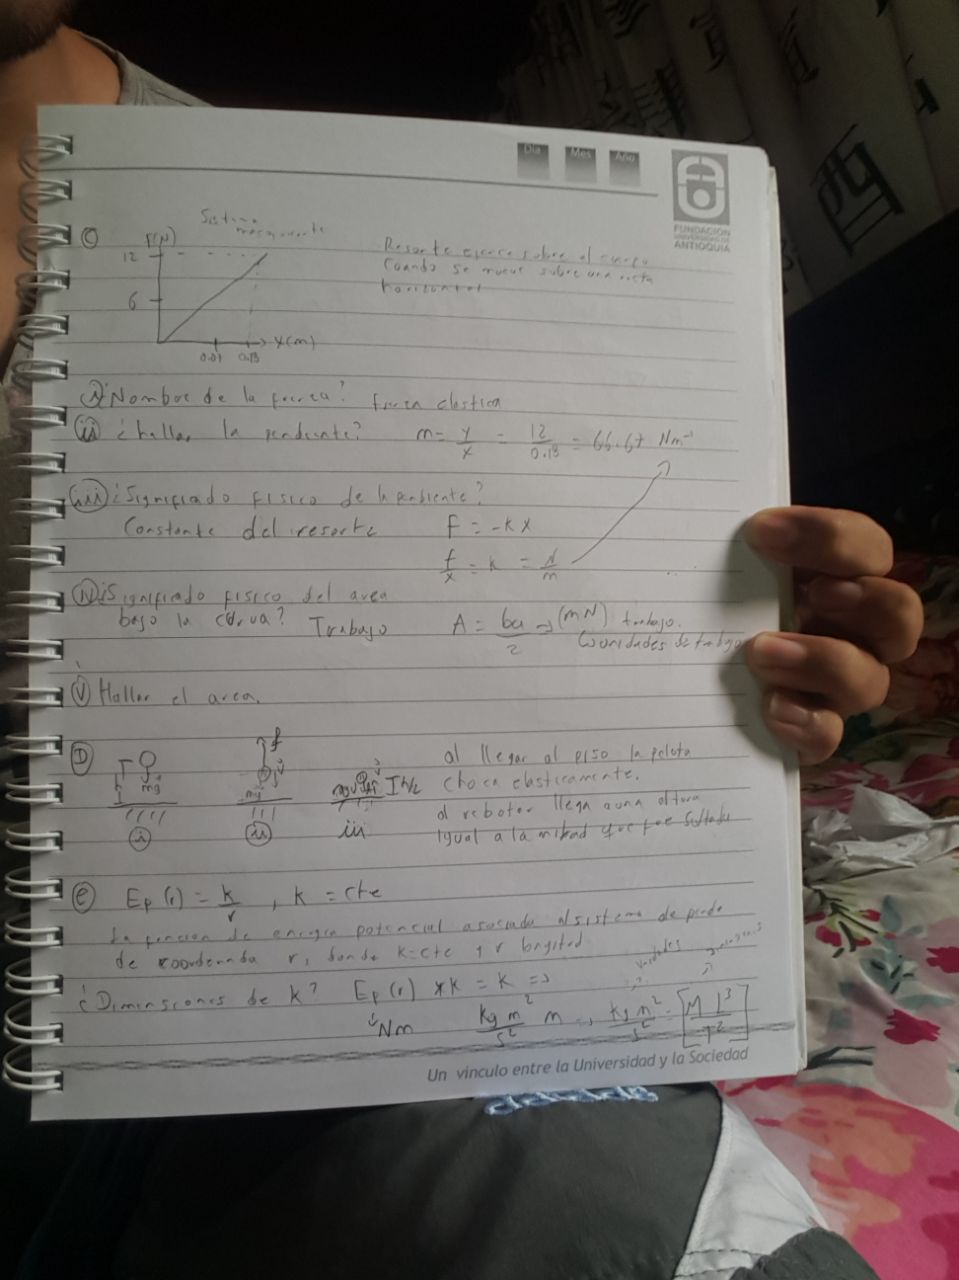 Dia Mes Año
FUNDACIÓN
UNIVERSIDAD DE
ANTIOQUIA
Sistema
masa
C
F(N)
12
6
0.01 0.18 x(m)
Resorte ejerce sobre el cuerpo
Cuando se mueve sobre una recta
horizontal
i) Nombre de la fuerza? fuerza elastica
ii) ¿hallar la pendiente? m= y/x = 12/0.18 = 66.67 Nm⁻¹
iii) ¿Significado fisico de la pendiente?
Constante del resorte f = -kx
f/x = k = N/m
iv) ¿Significado fisico del area
bajo la curva? Trabajo A = ba/2 → (mN) trabajo.
unidades de trabajo
v) Hallar el area.
D
mg f v
i ii iii
mg v I h/2
al llegar al piso la pelota
choca elasticamente.
al rebotar llega a una altura
igual a la mitad que fue soltada
e) Ep(r) = k/r , k = cte
La funcion de energia potencial asociada al sistema depende
de coordenada r, donde k=cte y r longitud
unidades
¿Dimensiones de k? Ep(r) *k = k ⇒
Nm kg m²/s² m kg m²/s² = [M L³/T²]
Un vinculo entre la Universidad y la Sociedad
西